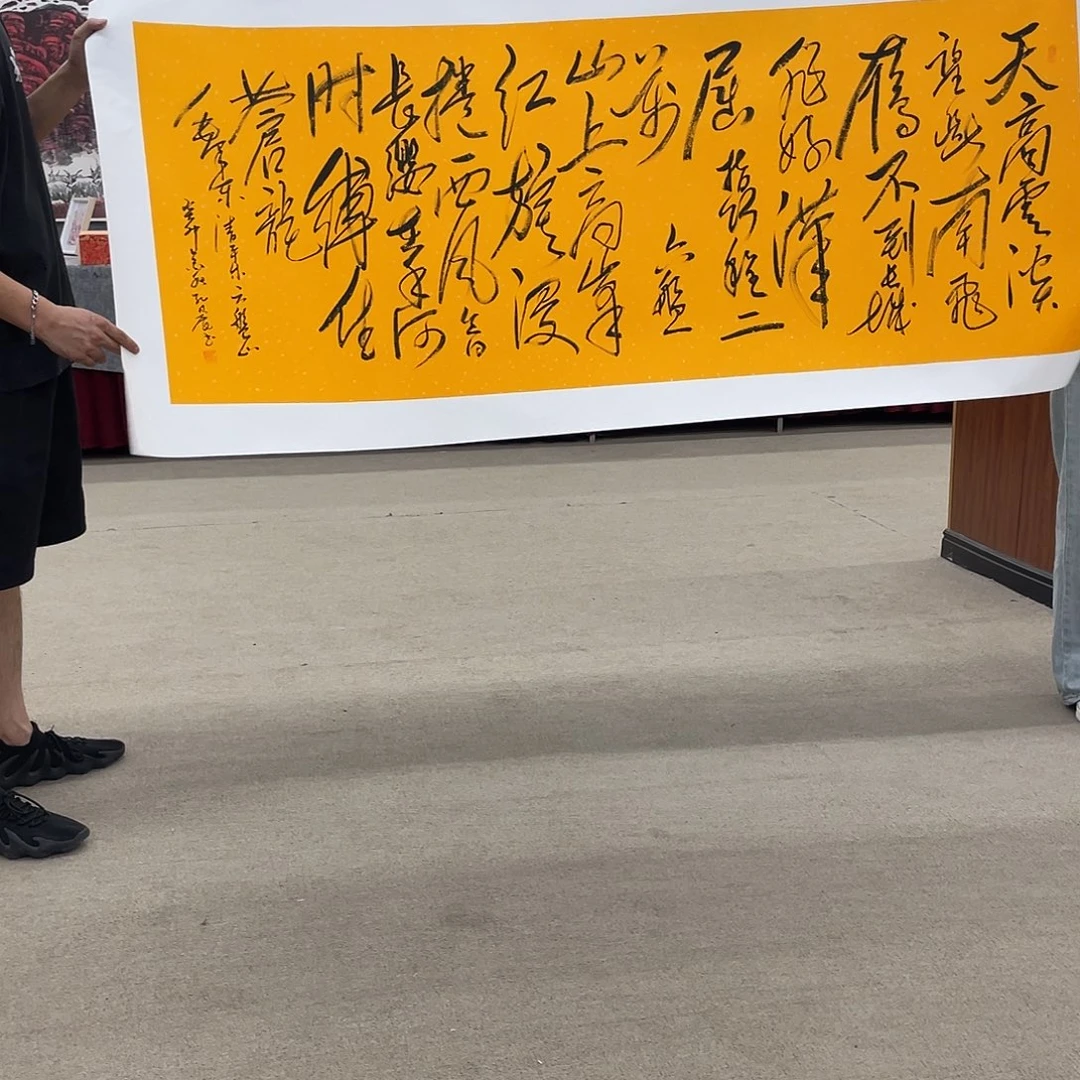 天高雲淡
望斷南飛
雁不到長城
非好漢
屈指行程二
萬 六盤
山上高峰
紅旗漫
捲西風今日
長纓在手何
時縛住
蒼龍
毛澤東清平樂六盤山